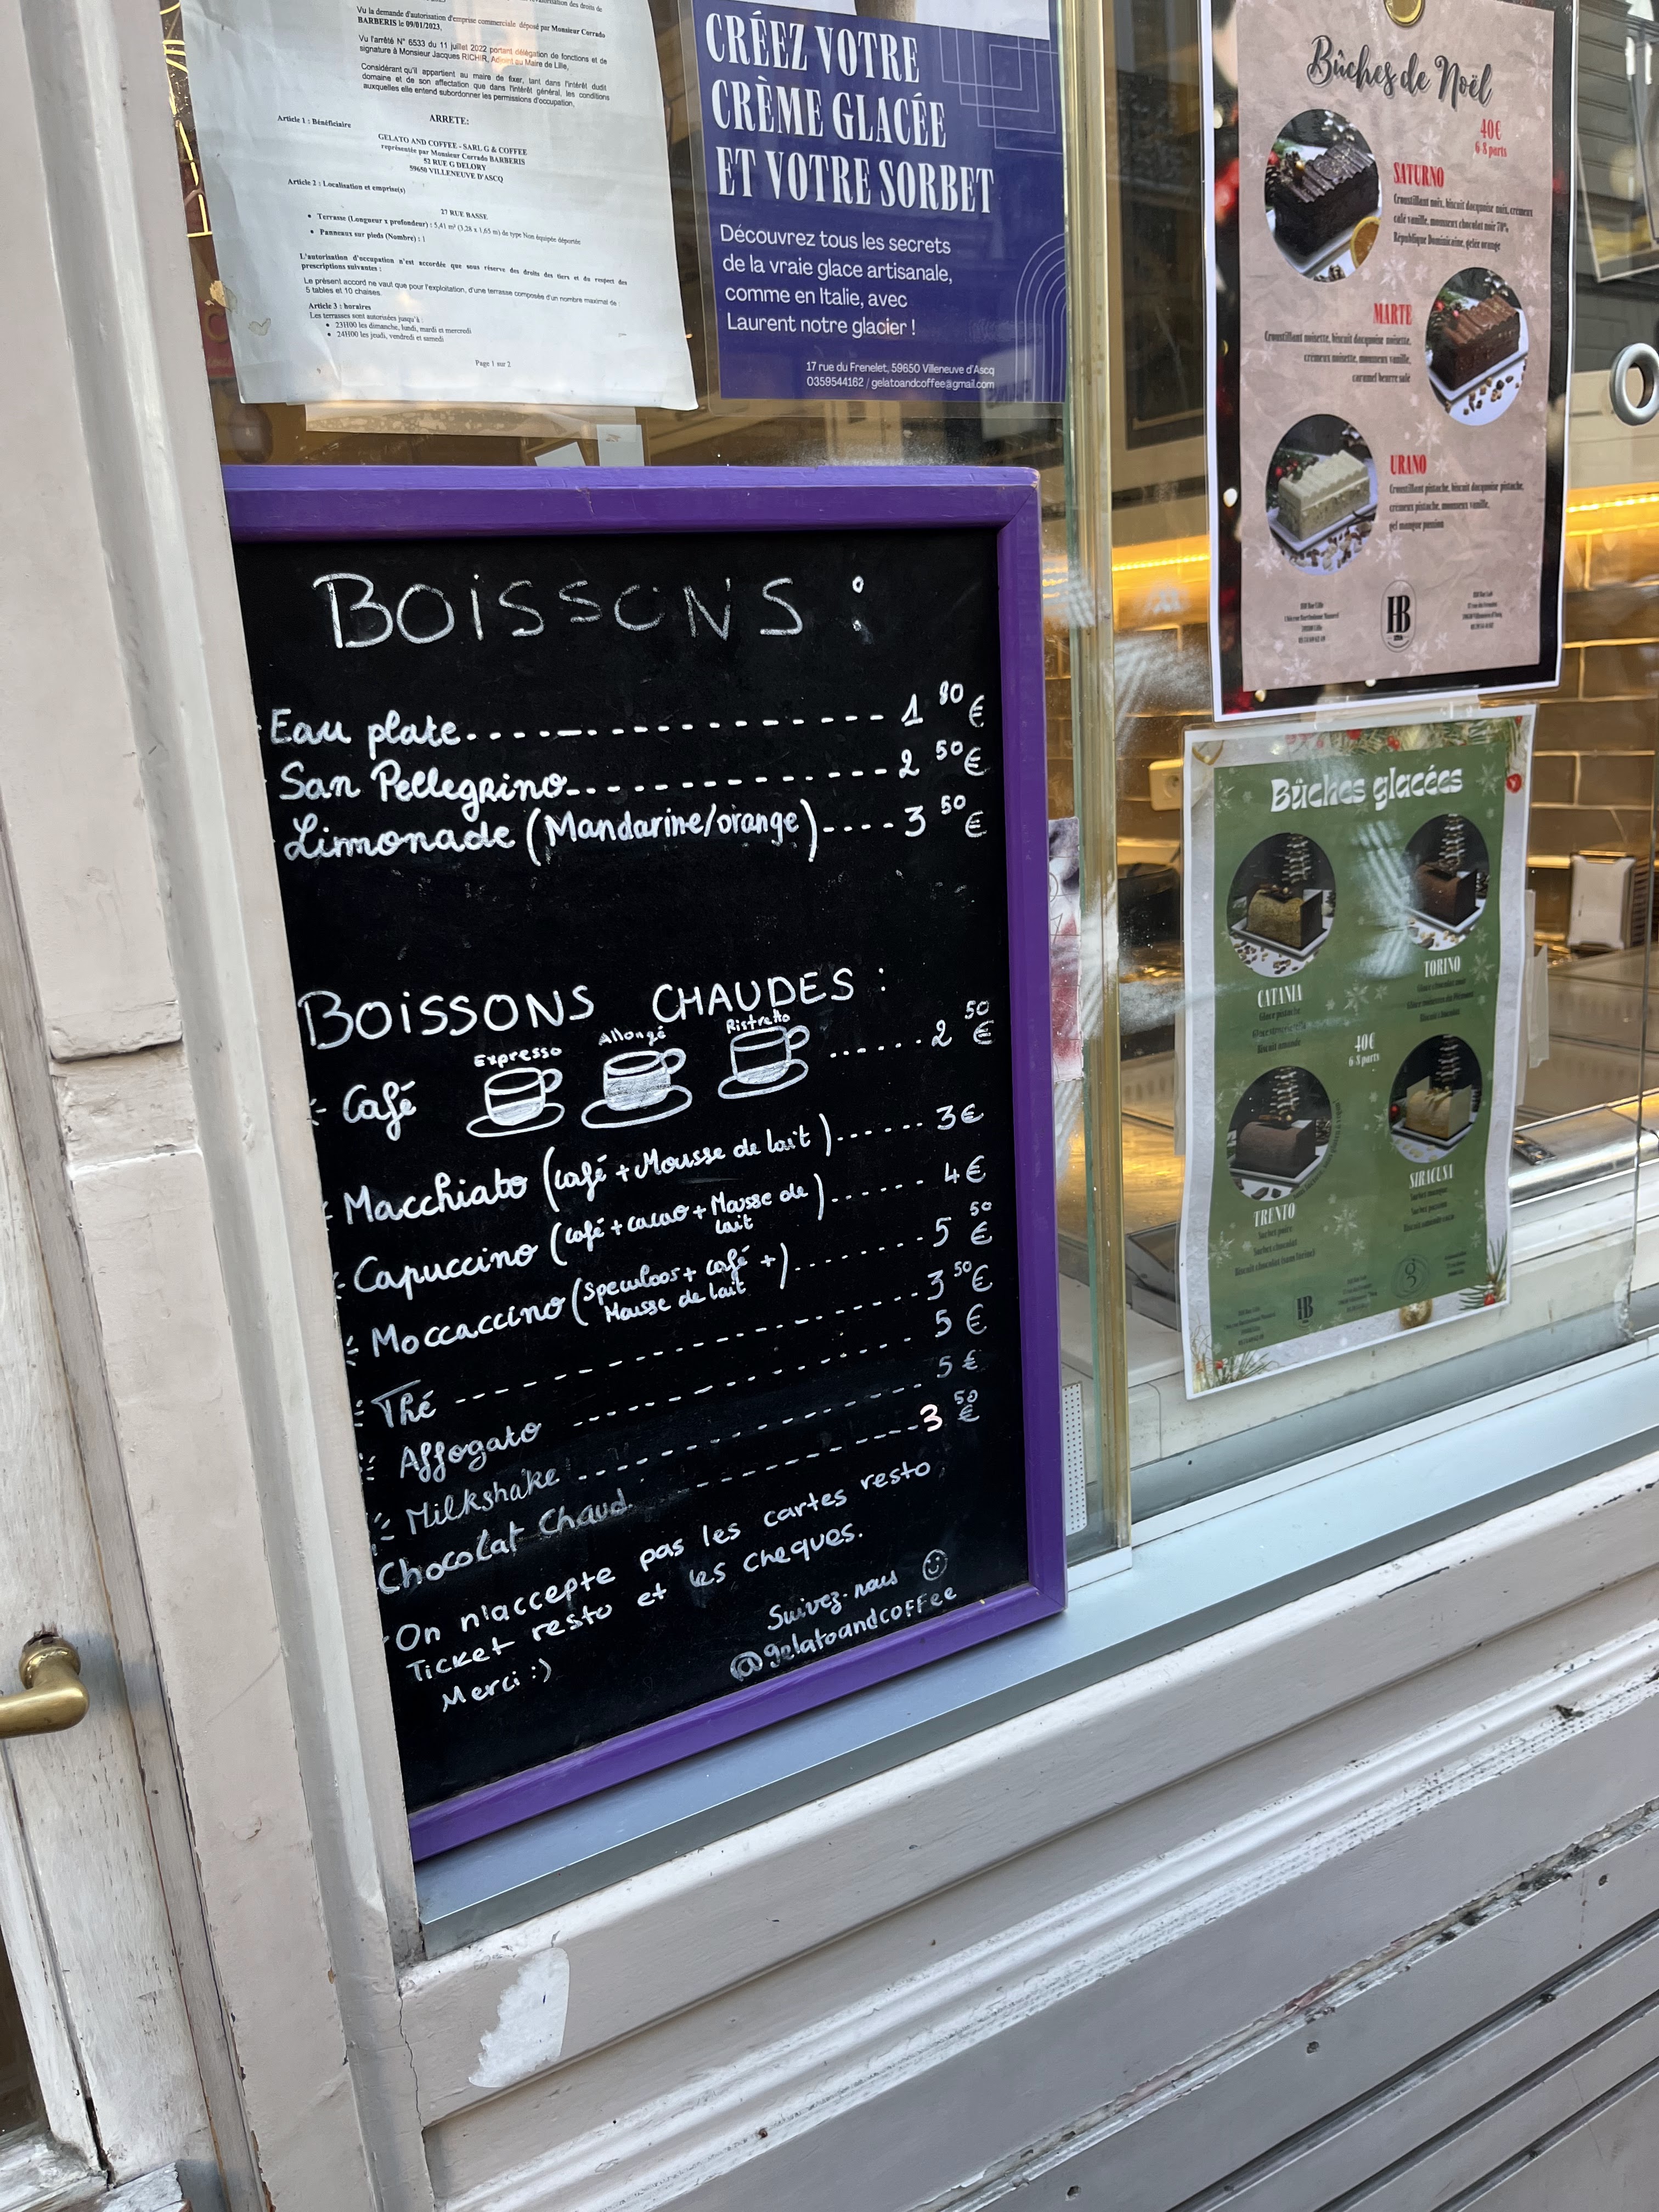 Vu la demande d'autorisation d'emprise commerciale déposé par Monsieur Corrado
BARBERIS le 09/01/2023,
Vu l'arrêté N° 6533 du 11 juillet 2022 portant délégation de fonctions et de
signature à Monsieur Jacques RICHIR, Adjoint au Maire de Lille,
Considérant qu'il appartient au maire de fixer, tant dans l'intérêt dudit
domaine et de son affectation que dans l'intérêt général, les conditions
auxquelles elle entend subordonner les permissions d'occupation,
ARRETE:
Article 1 : Bénéficiaire
GELATO AND COFFEE - SARL G & COFFEE
représentée par Monsieur Corrado BARBERIS
52 RUE G DELORY
59650 VILLENEUVE D'ASCQ
Article 2 : Localisation et emprise(s)
27 RUE BASSE
• Terrasse (Longueur x profondeur) : 5,41 m² (3,28 x 1,65 m) de type Non équipée déportée
• Panneaux sur pieds (Nombre) : 1
L'autorisation d'occupation n'est accordée que sous réserve des droits des tiers et du respect des
prescriptions suivantes :
Le présent accord ne vaut que pour l'exploitation, d'une terrasse composée d'un nombre maximal de :
5 tables et 10 chaises.
Article 3 : horaires
Les terrasses sont autorisées jusqu'à :
• 23H00 les dimanche, lundi, mardi et mercredi
• 24H00 les jeudi, vendredi et samedi
Page 1 sur 2
CRÉEZ VOTRE
CRÈME GLACÉE
ET VOTRE SORBET
Découvrez tous les secrets
de la vraie glace artisanale,
comme en Italie, avec
Laurent notre glacier !
17 rue du Frenelet, 59650 Villeneuve d'Ascq
0359544162 / gelatoandcoffee@gmail.com
Bûches de Noël
40€
6-8 parts
SATURNO
Croustillant noix, biscuit dacquoise noix, crémeux
café vanille, mousseux chocolat noir 70%
République Dominicaine, gelée orange
MARTE
Croustillant noisette, biscuit dacquoise noisette,
crémeux noisette, mousseux vanille,
caramel beurre salé
URANO
Croustillant pistache, biscuit dacquoise pistache,
crémeux pistache, mousseux vanille,
gel mangue passion
HB
Bûches glacées
CATANIA
Glace pistache
Biscuit amande
TORINO
Biscuit chocolat
40€
6-8 parts
TRENTO
Sorbet poire
Sorbet chocolat
SIRACUSA
Sorbet mangue
Sorbet passion
HB
BOISSONS :
Eau plate ------------- 1 80 €
San Pellegrino ------------- 2 50 €
Limonade (Mandarine/orange) ---- 3 50 €
BOISSONS CHAUDES :
Expresso Allongé Ristretto
- Café ...... 2 50 €
- Macchiato (café + Mousse de lait) ...... 3 €
- Capuccino (café + cacao + Mousse de lait) ...... 4 €
- Moccaccino (Speculoos + café + Mousse de lait) ...... 5 50 €
- Thé ------------- 3 50 €
- Affogato ------------- 5 €
- Milkshake ------------- 5 €
Chocolat Chaud ------------- 3 50 €
On n'accepte pas les cartes resto,
Ticket resto et les cheques.
Merci :)
Suivez-nous
@gelatoandcoffee